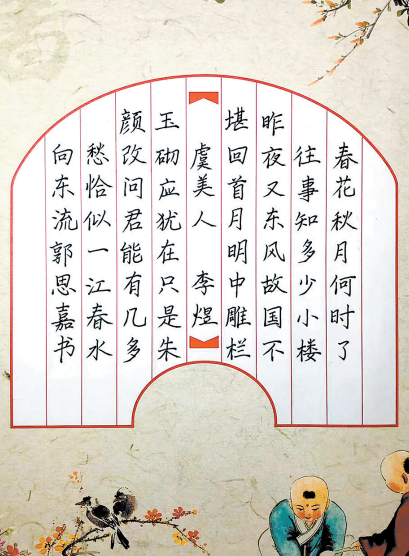 春花秋月何时了
往事知多少小楼
昨夜又东风故国不
堪回首月明中雕栏
虞美人 李煜
玉砌应犹在只是朱
颜改问君能有几多
愁恰似一江春水
向东流郭思嘉书